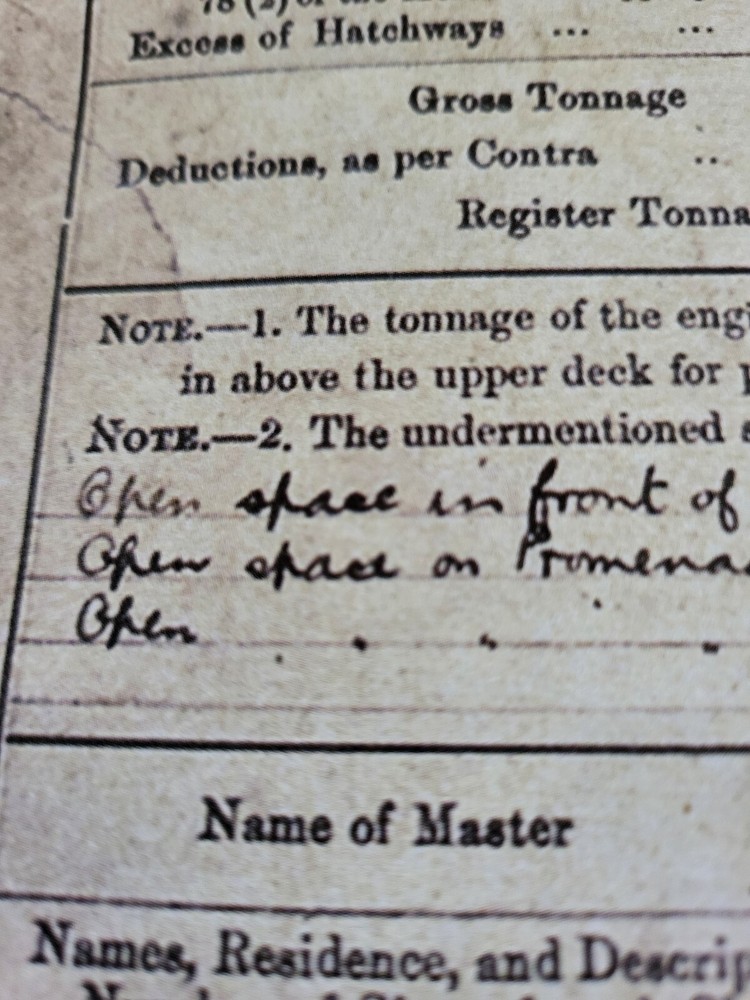 78 (2) of the
Excess of Hatchways ... ...
Gross Tonnage
Deductions, as per Contra ..
Register Tonna
NOTE.—1. The tonnage of the engi
in above the upper deck for p
NOTE.—2. The undermentioned s
Open space in front of
Open space on Promena
Open " " "
Name of Master
Names, Residence, and Descrip